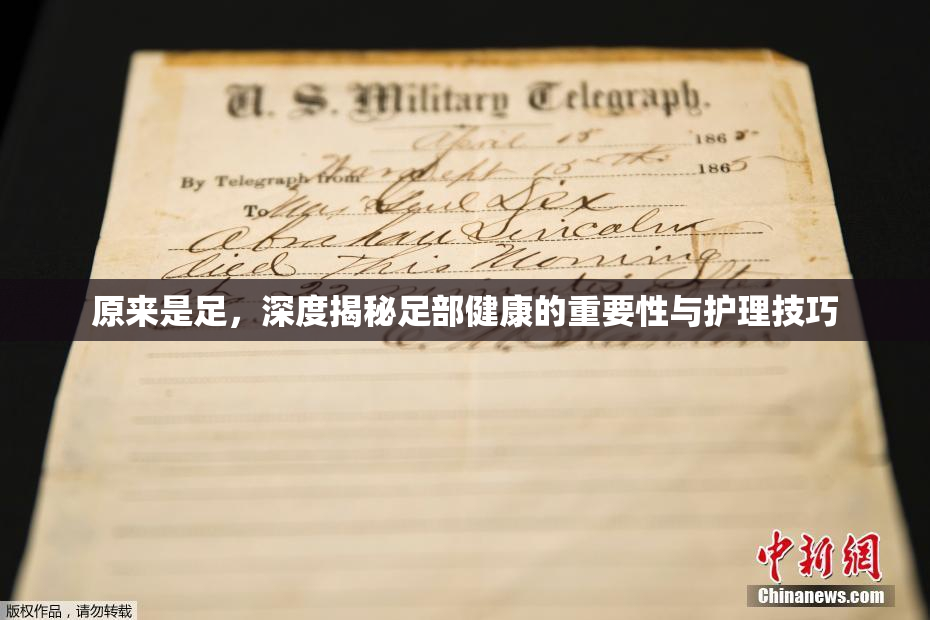 U. S. Military Telegraph.
April 15 1865
By Telegraph from War Dept 15th 1865
To Maj Genl Dix
Abraham Lincoln
died This Morning
at 22 minutes after
原来是足，深度揭秘足部健康的重要性与护理技巧
E. M. Stanton
中新网
Chinanews.com
版权作品，请勿转载